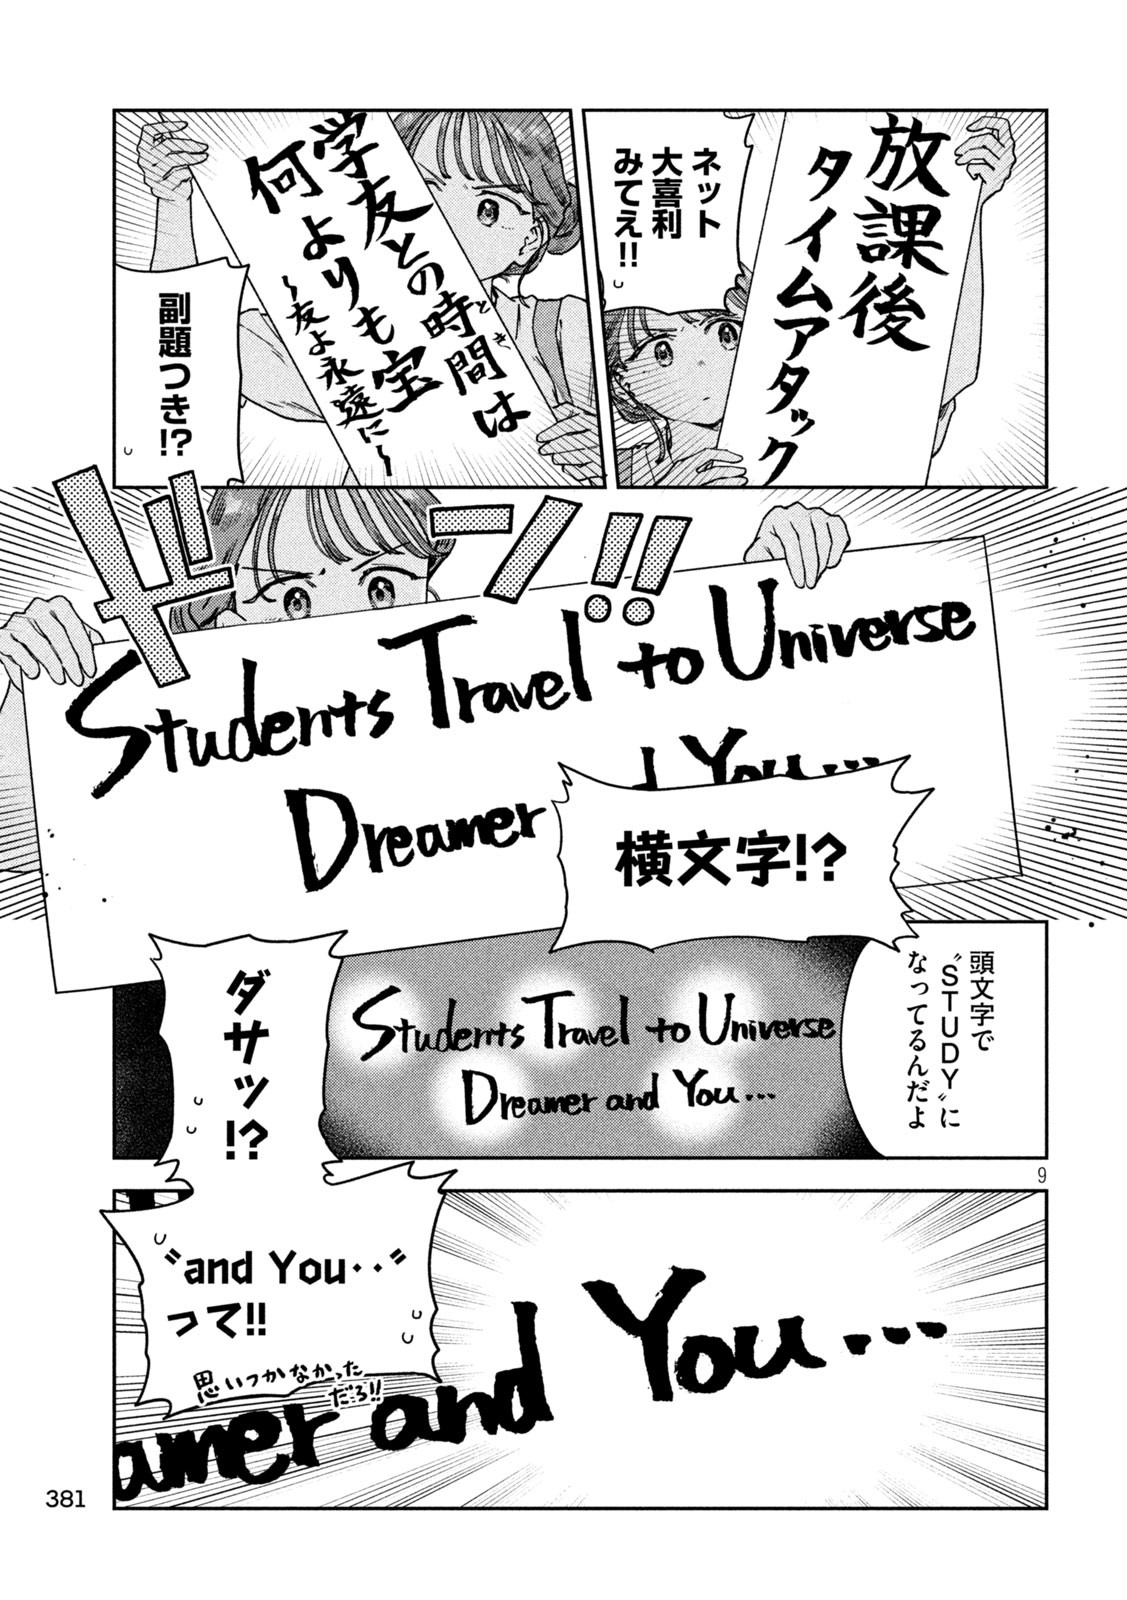 放課後
タイムアタック
ネット
大喜利
みてえ!!
学友との時間は
とき
何よりも宝
〜友よ永遠に〜
副題つき!?
ドーン!!
Students Travel to Universe
Dreamer and You...
横文字!?
頭文字で
〝STUDY〟に
なってるんだよ
Students Travel to Universe
Dreamer and You...
ダサッ!?
9
〝and You‥〟
って!!
思いつかなかった
だろ!!
amer and You...
381